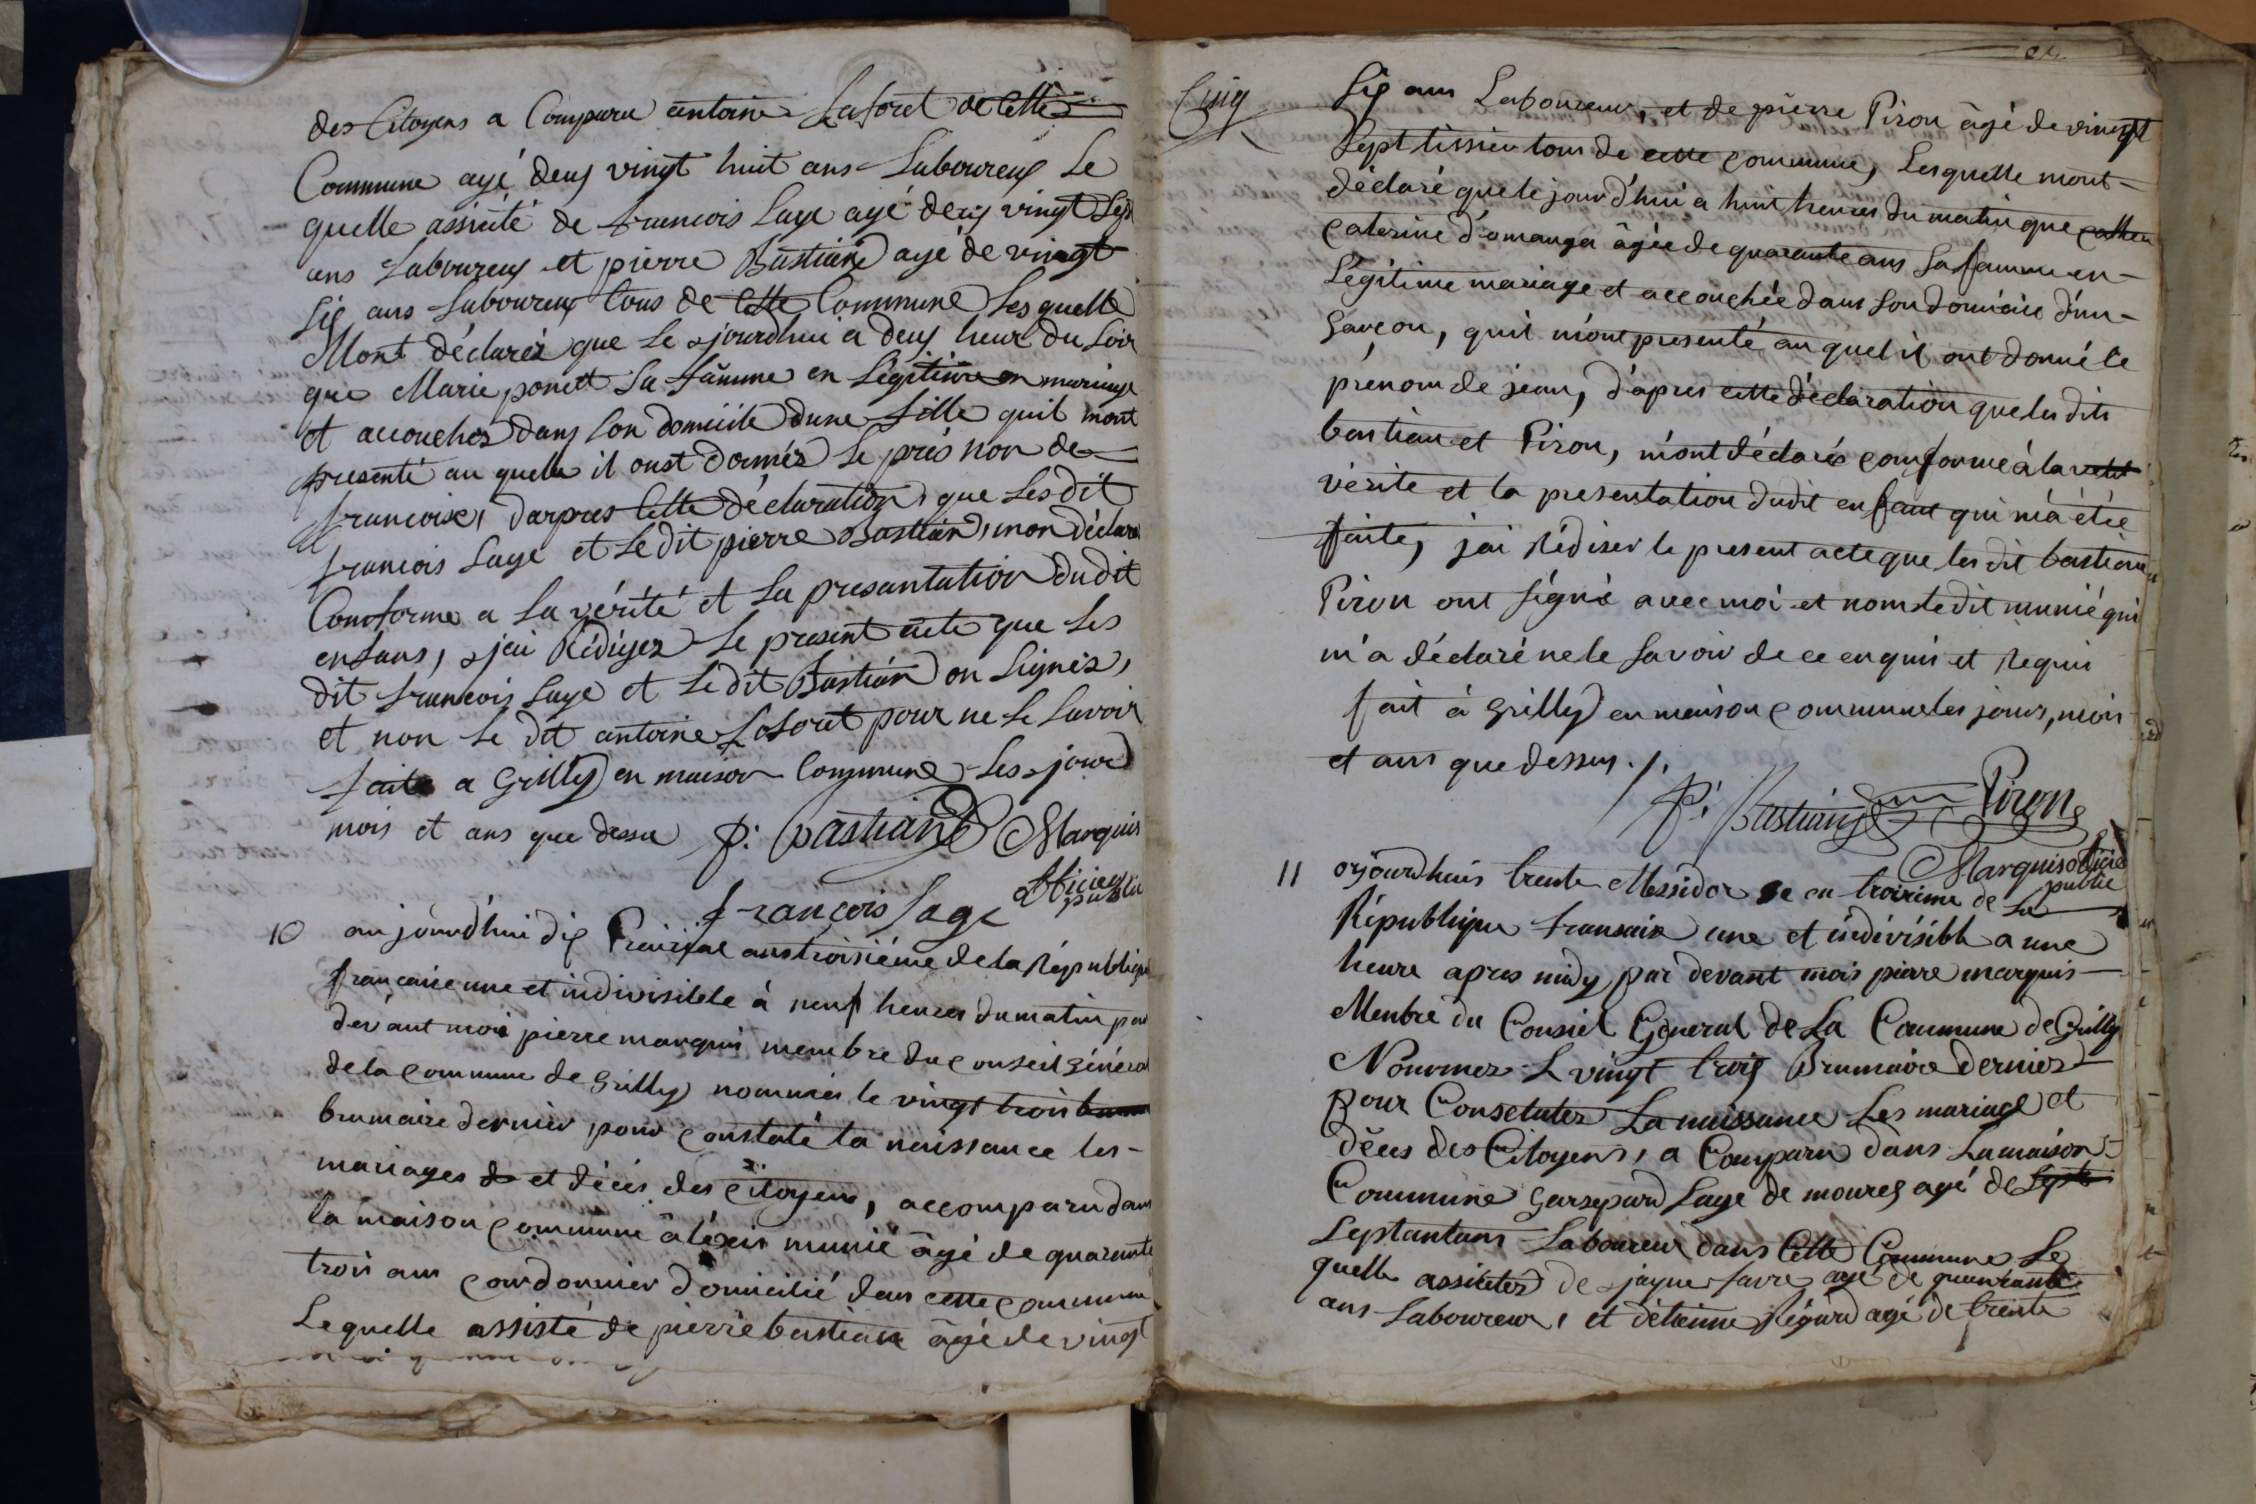 des Citoyens a Comparu antoine Laforet de Cette
Commune agé deux vingt huit ans Laboureux Le
quelle assisté de francois Sage agé deux vingt Sept
ans Laboureux et pierre Bastian agé de vingt
Six ans Laboureux tous de Cette Commune Lesquelle
Mont déclarés que Le sjourdhui a deux heur du Soir
que Marie ponett Sa famme en Légitime en mariage
et accouchez dans Son domicile dune fille quil mont
presenté au quelle il onst donnéz Le prés non de
francoise, darpres Cette déclaration, que Ses dit
francois Sage et Le dit pierre Bastian, mon déclaré
Comforme a La vérité et La presantation dudit
enfans, sjai Rédigez Le present acte que Les
dit francois Sage et Le dit Bastian on Signéz,
et non Le dit antoine Laforet pour ne Le Savoir
fait a Grilly en maison Commune Les jour
mois et ans que dessu P: Bastian Marquis
françois Sage officier public
10 aujourd'hui dix Prairial ans troisiéme de la République
française une et indivisible à neuf heures du matin par
devant moi pierre marquis membre du conseil général
de la commune de Grilly nommés le vingt trois
brumaire dernier pour constaté la naissance les
mariages et décés des Citoyens, accomparu dans
la maison commune àléxis munié âgé de quarante
trois ans cordonnier domicilié dans cette commune
Lequelle assisté de pierre bastian âgé de vingt
Cinq
Six ans Laboureur, et de pierre Piron âgé de vingt
Sept tissier tous de cette commune, Lesquelle mont
déclaré que le jourd'hui a huit heures du matin que
caterine d'omanga âgée de quarante ans Sa famme en
Légitime mariage et accouchée dans Son domicile d'un
garçon, quil m'ont presenté au quel il ont donné le
prénom de jean, d'apres cette déclaration que les dits
bastian et Piron, m'ont déclaré comforme à la
vérité et la presentation dudit enfant qui m'a étée
faite, jai Rédiser le present acte que les dit bastian
Piron ont signé avec moi et nom le dit munié qui
m'a déclaré ne le Savoir de ce enquis et Requis
fait à Grilly en maison commune les jours, mois
et ans que dessus ./.
P: Bastian Piron
Marquis officié public
11 osjourdhuis trente Messidor en troisieme de La
République fransaise une et indévisible a une
heure apres midy par devant mois pierre marquis
Menbre du Consiel General de La Commune de Grilly
Nommez L vingt trois Brumaire dernier
pour Consctatez La naissance Les mariage et
déces des Citoyens, a Comparu dans La maison
Commune Garsepard Sage de mourex agé de
Septantans Laboureur dans Cette Commune Le
quelle assistez de sjaque favre agé de quarante
ans Laboureur, et détienne Régard agé de trente